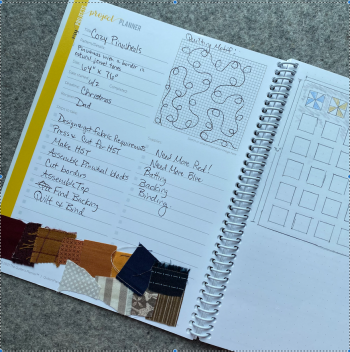 my project PLANNER
Cozy Pinwheels
Pinwheels with a border in
natural jewel tones
64" x 76"
4's
Christmas
Dad
Quilting Motif:
Design + get Fabric Requirements
Press + Cut for HST
Make HST
Assemble Pinwheel blocks
Cut borders
Assemble Top
Find Backing
Quilt & Bind
Need More Red!
Need More Blue
Batting
Backing
Binding